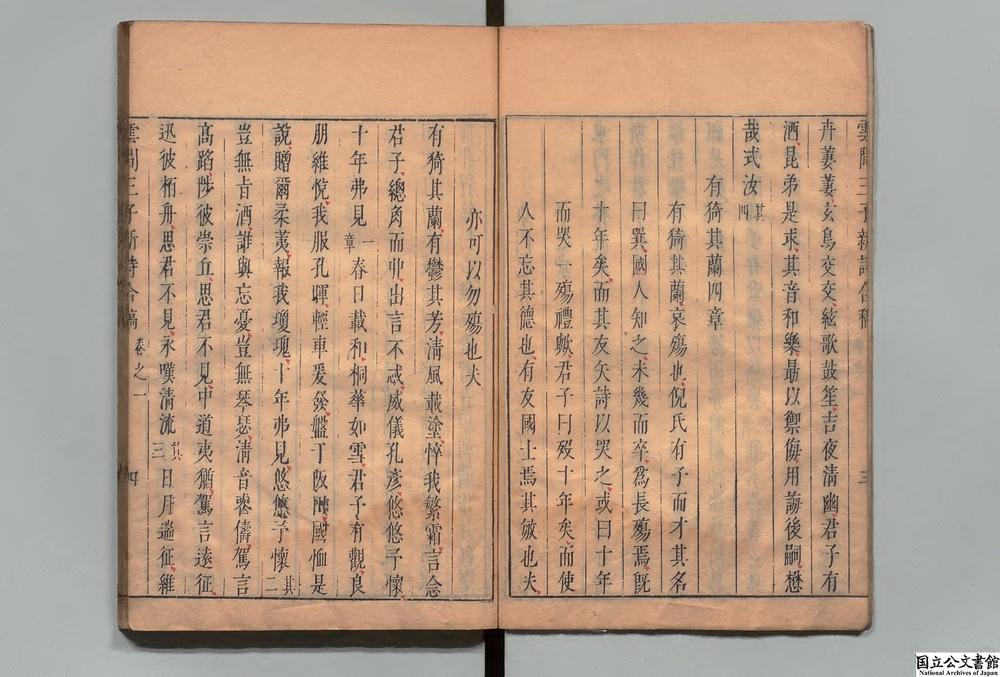 雲間三子新詩合稿 三
卉萋萋玄鳥交交絃歌鼓笙吉夜清幽君子有
酒昆弟是求其音和樂最以禦侮用誨後嗣懋
哉式汝其四
有猗其蘭四章
有猗其蘭哀殤也倪氏有子而才其名
曰巽國人知之未幾而卒為長殤焉既
十年矣而其友矢詩以哭之或曰十年
而哭一殤禮歟君子曰歿十年矣而使
人不忘其德也有友國士焉其傚也夫
亦可以勿殤也夫
有猗其蘭有鬱其芳清風載塗悴我繁霜言念
君子總角而丱出言不忒威儀孔彥悠悠予懷
十年弗見一章春日載和桐華如雪君子有觀良
朋維悅我服孔暉輕車爰發艦于阪國恤是
說贈爾柔荑報我瓊瑰十年弗見悠悠予懷其二
豈無旨酒誰與忘憂豈無琴瑟清音孰儔駕言
高蹈陟彼崇丘思君不見中道夷猶駕言遠征
迅彼栢舟思君不見永嘆清流其三日月遄征維
雲間三子新詩合稿 卷之一 四
国立公文書館
National Archives of Japan